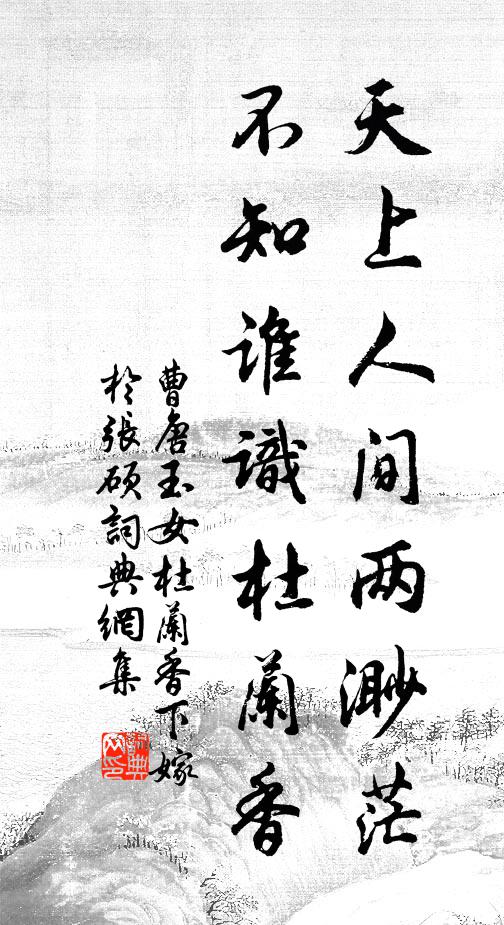 天上人间两渺茫
不知谁識杜蘭香
曹唐玉女杜蘭香下嫁
於張碩詞典網集
詞典网印